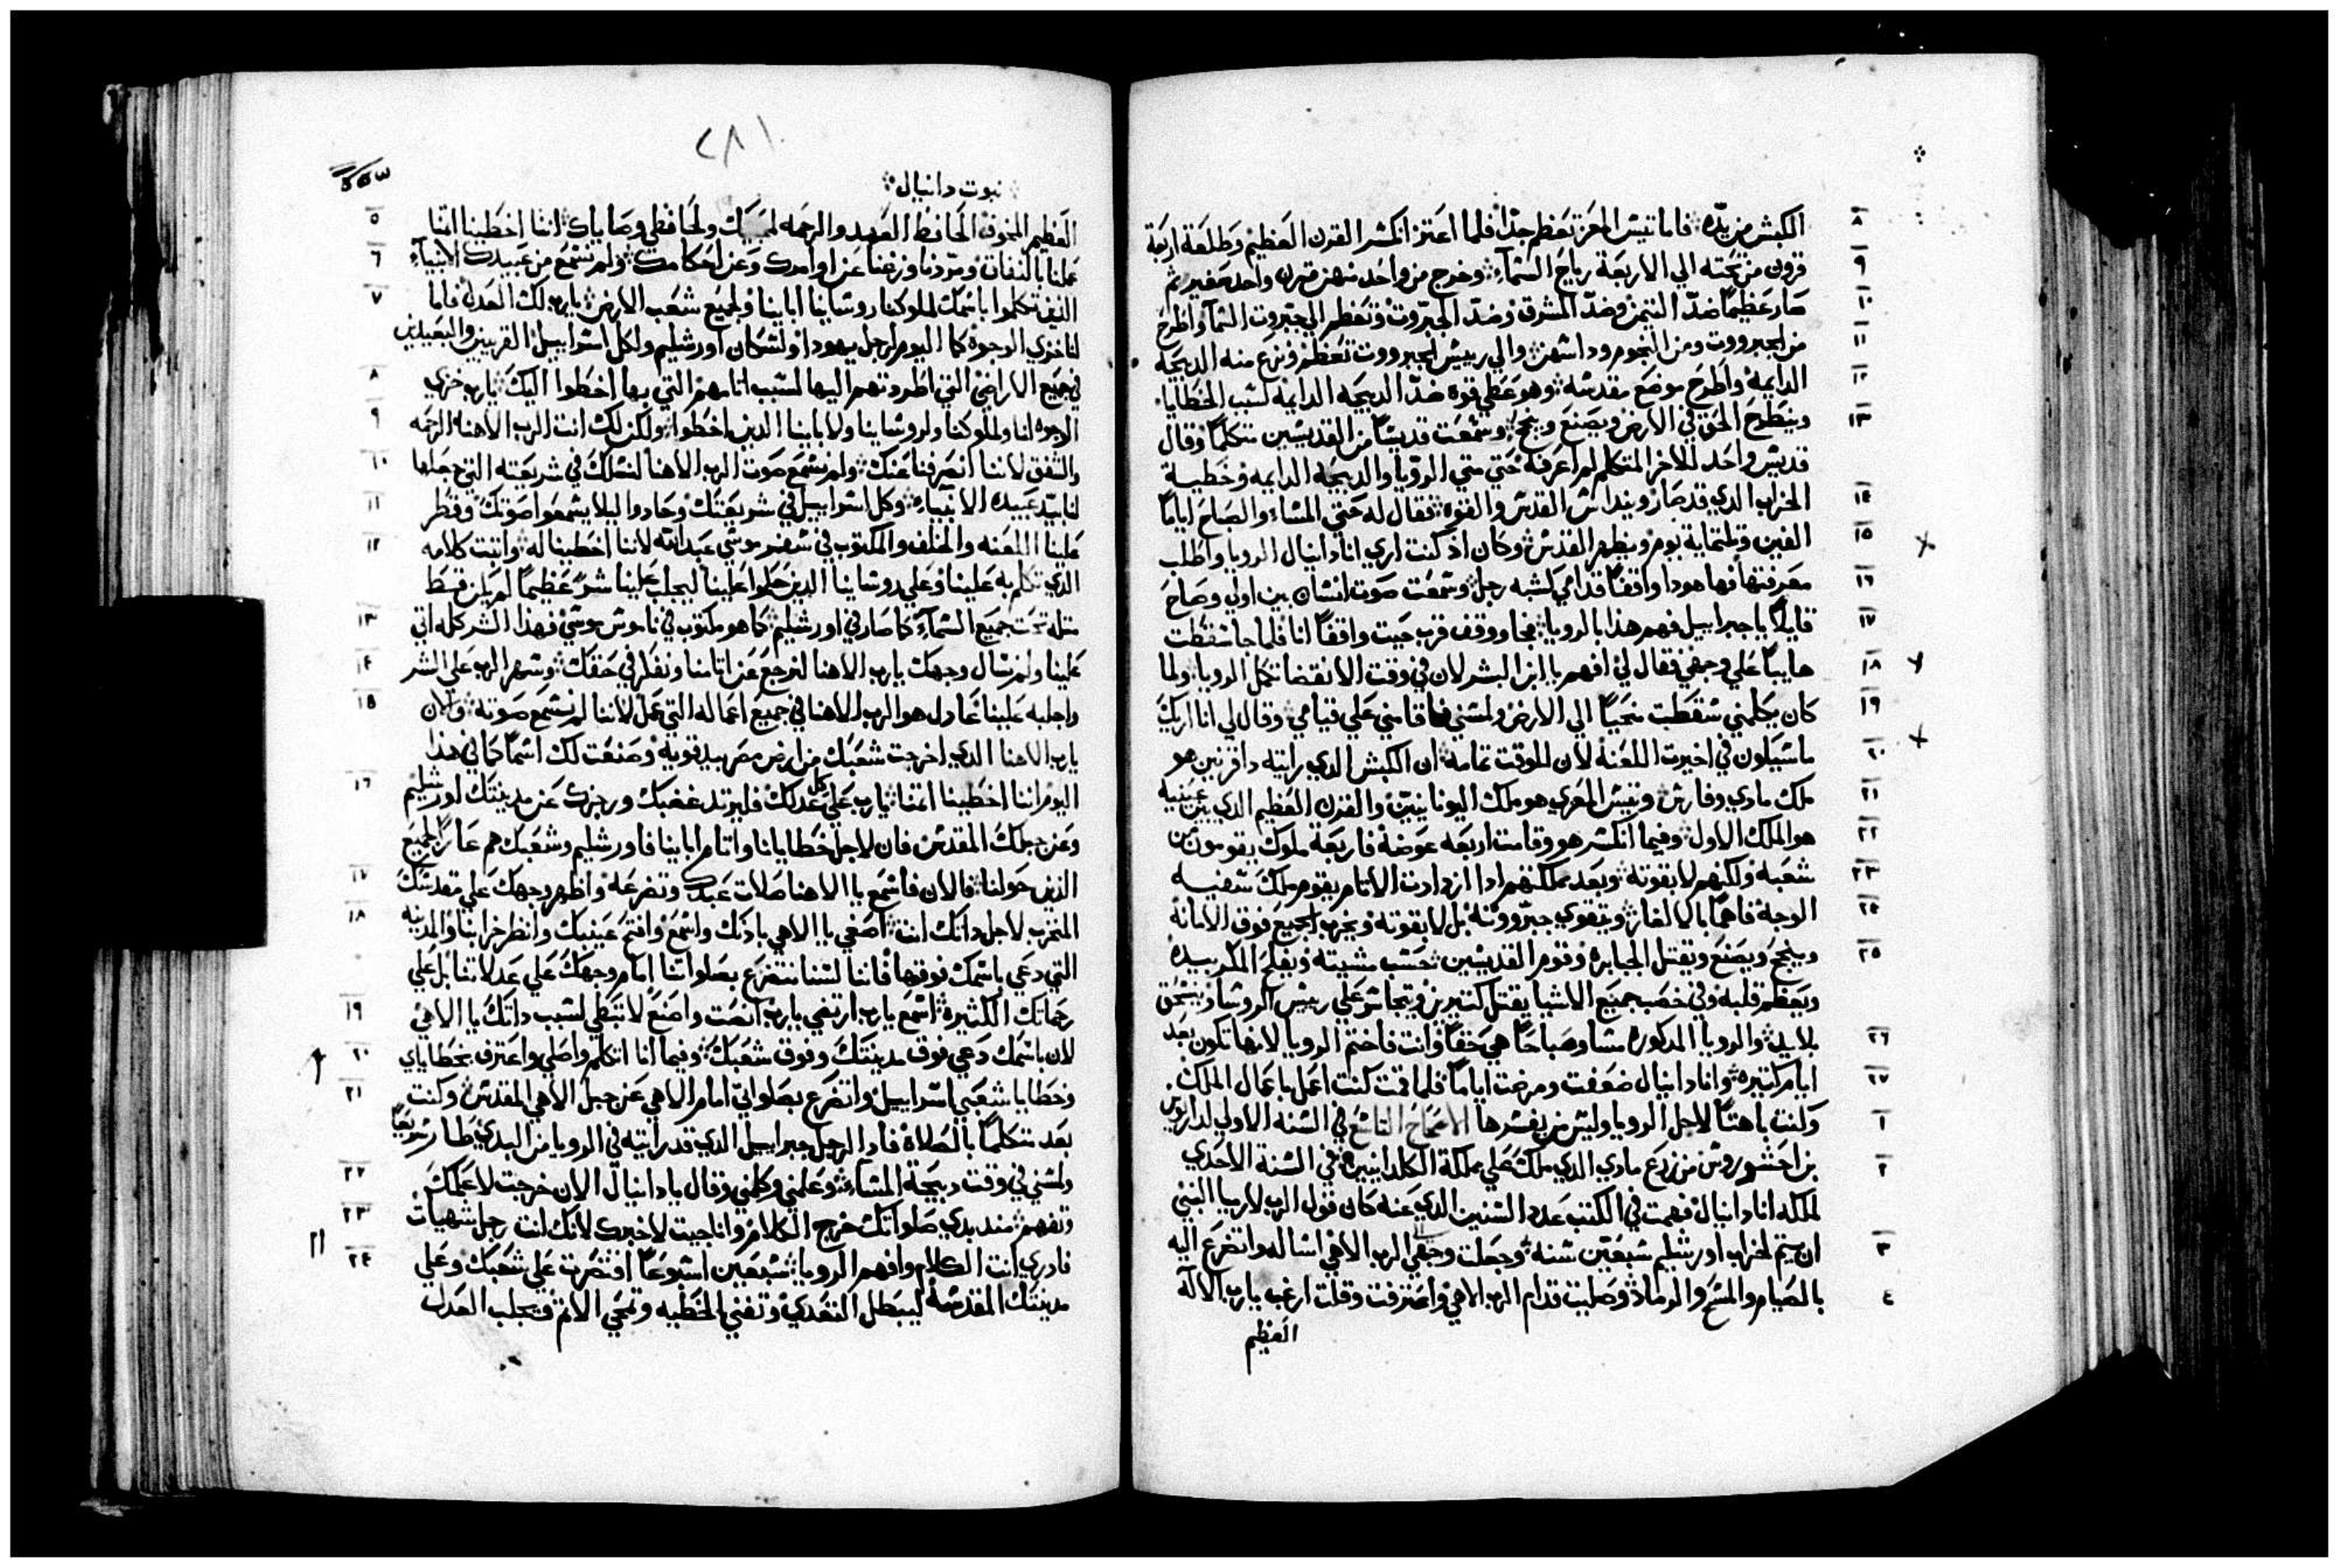 الكبش من يدّه فاما تيس المعز تعظم جدّا فلما اعتز انكسر القرن العظيم وطلعة اربعة ٨
قرون من تحته الي الاربعة رياح السماء وخرج من واحد منهن قرن واحد صغير ثم ٩
صار عظيمًا ضدّ التيمن وضدّ المشرق وضدّ الجبروت وتعظم الي جبروت السما واطرح ١٠
من الجبرووت ومن النجوم وداسهن والي رييس الجبرووت تعظم ونزع منه الدبيحه ١١
الدايمة واطرح موضع مقدسه وهو عطي قوة ضدّ الدبيحه الدايمة لسبب الخطايا ١٢
وينطرح الحق في الارض ويصنع وينجح وسمعت قديسًا من القديسين متكلمًا وقال ١٣
قديس واحد للاخر المتكلم لم اعرفه حتي متي الرويا والدبيحه الدايمه وخطية
الخراب الدي قد صار وينداس القدس والقوة فقال له حتي المساء والصباح ايامًا ١٤
الفين وتلتماية يوم ويطهر القدس وكان اد كنت اري انا دانيال الرويا واطلب ١٥
معرفتها فها هودا واقفًا قدامي كشبه رجل وسمعت صوت انسان بين اولي وصاح ١٦
قايلًا يا جبراييل فهم هذا بالرويا فجا ووقف قرب حيت واقفًا انا فلما جا سقطت ١٧
هايبًا علي وجهي فقال لي افهم يا ابن البشر لان في وقت الانقضا تكمل الرويا ولما ١٨
كان يكلمني سقطت منحيًا الي الارض ولمسني فاقامني علي قيامي وقال لي انا اريك ١٩
ما سيكون في اخيرت اللعنة لان للوقت تمامه ان الكبش الدي رايته داقرنين هو ٢٠
ملك مادي وفارس وتيس المعزي هو ملك اليونانيين والقرن العظيم الدي بين عينيه ٢١
هو الملك الاول وفيما انكسر هو وقامت اربعه عوضه فاربعة ملوك يقومون من ٢٢
شعبه ولكنهم لا بقوته وبعد مملكتهم ادا ازدادت الاتام يقوم ملك سفيه ٢٣
الوجه فاهمًا بالالغاز وتتقوي جبرووته بل لا بقوته ويخرب الجميع فوق الامانة ٢٤
وينجح ويصنع ويقتل الجبابره وقوم القديسين حسب مشيته ويفلح المكر بيده ٢٥
ويعظم قلبه وفي خصب جميع الاشيا يقتل كتيرين ويتجاسر علي رييس الروسا وينسحق
بلا يد والرويا المدكوره مسا وصباحًا هي حقًا وانت فاختم الرويا لانها تكون بعد ٢٦
ايام كتيره وانا دانيال ضعفت ومرضت ايامًا فلما قمت كنت اعمل باعمال الملك ٢٧
وكنت باهتًا لاجل الرويا وليس من يفسرها الاصحاح التاسع في السنه الاولي لداريوس ١
بن احشوروش من زرع مادي الدي ملك علي مملكة الكلدانيين في السنة الاحدي ٢
لملكه انا دانيال فهمت في الكتب عدد السنين الدي عنه كان قول الرب لارميا النبي
ان يتم لخراب اورشليم سبعين سنه وجعلت وجهي الي الرب الاهي اساله واتضرع اليه ٣
بالصيام والمسح والرماد وصليت قدام الرب الاهي واعترفت وقلت ارغب يا رب الاله ٤
العظيم
٢٨١
نبوت دانيال
العظيم المخوف الحافظ العهد والرحمه لمحبيك ولحافظي وصاياك اننا اخطينا اتمنا ٥
عملنا بالنفاق ومردنا وزغنا عن اوامرك وعن احكامك ولم نسمع من عبيدك الانبياء ٦
الذين تكلموا باسمك لملوكنا روساينا اباينا ولجميع شعب الارض يا رب لك العدل فاما ٧
لنا خزي الوجوه كما اليوم لرجل يهودا ولسكان اورشليم ولكل اسراييل القريبين والبعيدين
في جميع الاراضي التي اطردتهم اليها لسبب اتامهم التي بها اخطوا اليك يا رب خزي ٨
الوجوه لنا ولملوكنا ولروساينا ولاباينا الدين اخطوا ولكن لك انت الرب الاهنا الرحمه ٩
والشفق لاننا انصرفنا عنك ولم نسمع صوت الرب الاهنا لنسلك في شريعته التي جعلها ١٠
لنا بيّد عبيده الانبياء وكل اسراييل في شريعتك وحادوا ليلا يسمعوا صوتك وقطر ١١
علينا اللعنه والحلف والمكتوب في سفر موسي عبد الله لاننا اخطينا له واتبت كلامه ١٢
الدي تكلم به علينا وعلي روساينا الدين حكموا علينا ليجلب علينا شرً عظيمًا لم يكن قط
متله تحت جميع السماء كما صار في اورشليم كما هو مكتوب في ناموس موسي فهدا الشر كله اتي ١٣
علينا ولم نسال وجهك يا رب الاهنا لنرجع عن اتامنا ونفكر في حقك وسهر الرب علي الشر ١٤
واجلبه علينا عادل هو الرب الاهنا في جميع اعماله التي عمل لاننا لم نسمع صوته والان ١٥
يا رب الاهنا الدي اخرجت شعبك من ارض مصر بيد قوية وصنعت لك اسمًا كما في هذا
اليوم اننا اخطينا اتمنا يا رب علي كل عدلك فليرتد غضبك ورجزك عن مدينتك اورشليم ١٦
وعن جبلك المقدس فان لاجل خطايانا واتام اباينا فاورشليم وشعبك هم عارً لجميع
الذين حولنا فالان فاسمع يا الاهنا صلات عبدك وتضرعه واظهر وجهك علي مقدسك ١٧
المتخرب لاجل داتك انت اصغي يا الاهي بادنك واسمع وافتح عينيك وانظر خرابنا والمدينه ١٨
التي دعي باسمك فوقها فاننا لسنا نتضرع بصلواتنا امام وجهك علي عدلاتنا بل علي
رحماتك الكثيره اسمع يا رب ارتضي يا رب انصت واصنع لا تبطي لسبب داتك يا الاهي ١٩
لان باسمك دعي فوق مدينتك وفوق شعبك وفيما انا اتكلم واصلي واعترف بخطاياي ٢٠
وخطايا شعبي اسراييل واتضرع بصلواتي امام الاهي عن جبل الاهي المقدس وكنت ٢١
بعد متكلمًا بالصلاة فادا الرجل جبراييل الدي قد رايته في الرويا من البدي طار سريعًا
ولمسني في وقت دبيحة المساء وعلمني وكلمني وقال يا دانيال الان خرجت لاعلمك ٢٢
وتفهم مند بدي صلواتك خرج الكلام وانا جيت لاخبرك لانك انت رجل شهيات ٢٣
فادري انت الكلام وافهم الرويا سبعين اسبوعًا اقتصرت علي شعبك وعلي ٢٤
مدينتك المقدسة ليبطل التعدي وتفني الخطيه وتمحي الاثم فيجلب العدل